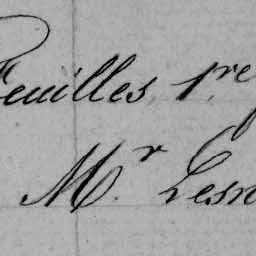 Feuilles, 1.re
M.r Lesn